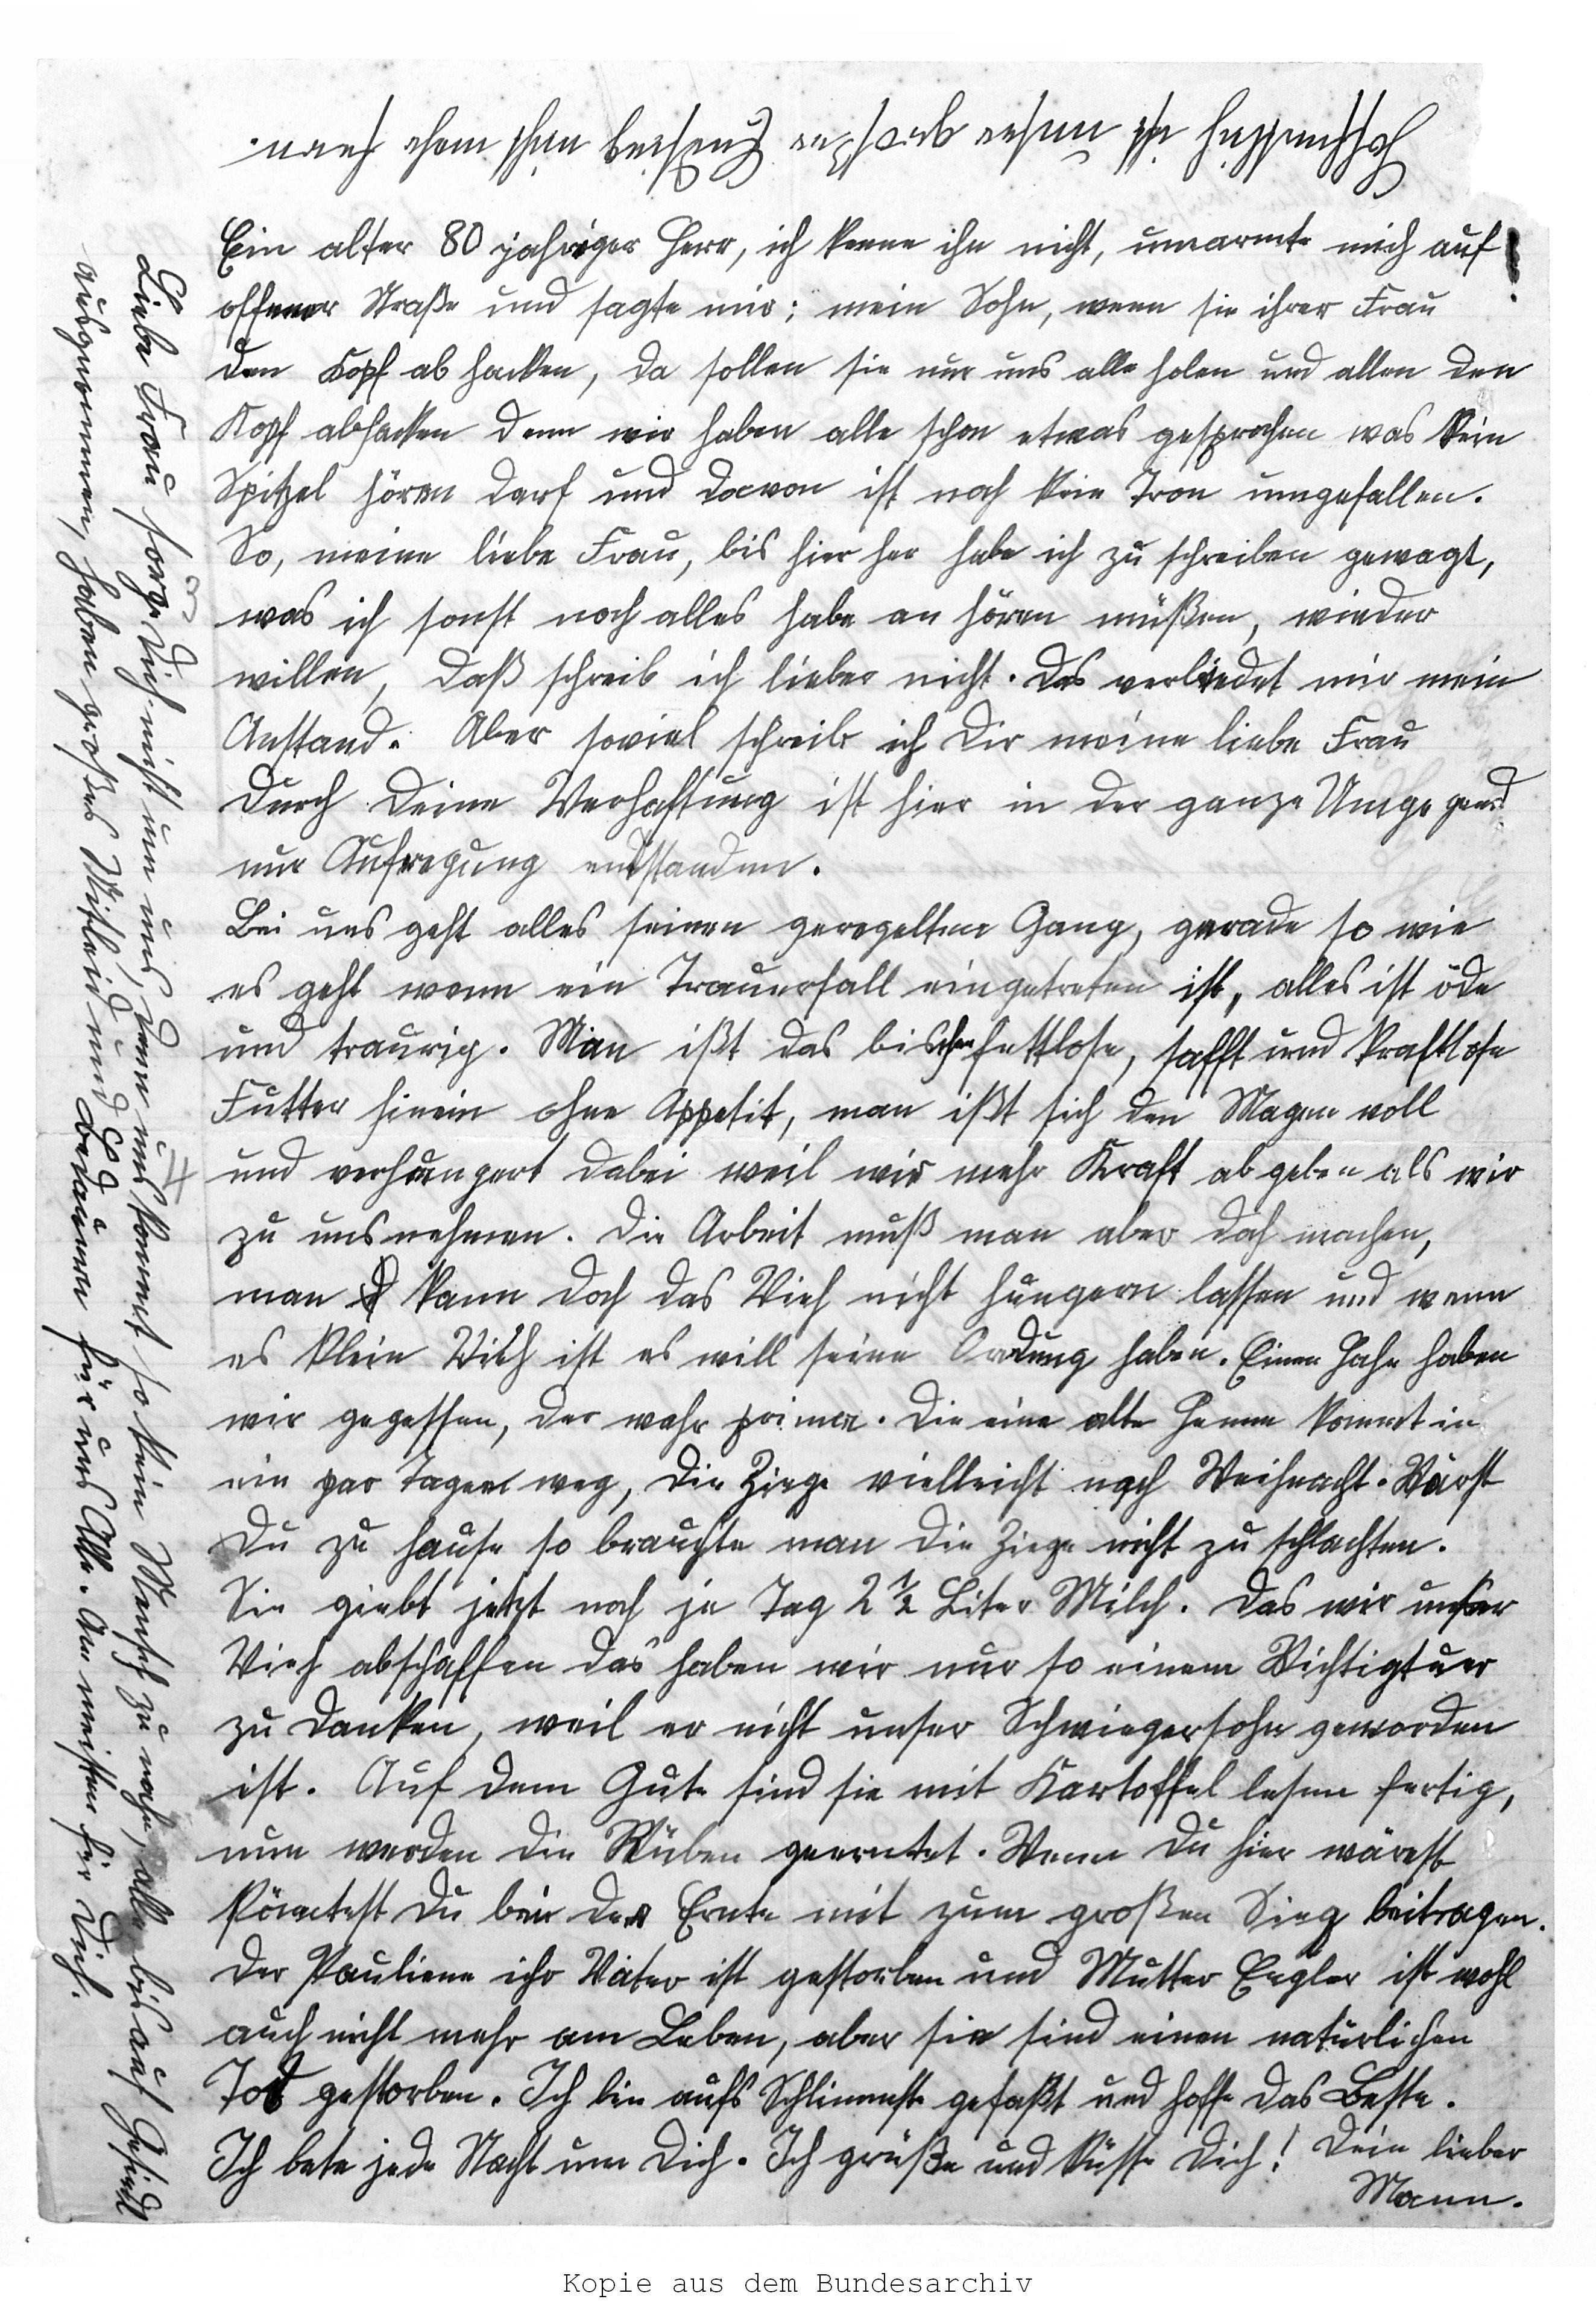 Ein alter 80 jahriger Herr, ich kenne ihn nicht, umarmte mich auf
offener Straße und sagte mir: mein Sohn, wenn sie ihrer Frau
den Kopf ab hacken, da sollen sie nur uns alle holen und allen den
Kopf abhacken denn wir haben alle schon etwas gesprochen was kein
Spitzel hören darf und davon ist noch kein Tron umgefallen.
So, meine liebe Frau, bis hier her habe ich zu schreiben gewagt,
was ich sonst noch alles habe an hören müßen, wieder
willen, daß schreib ich lieber nicht. Das verbiedet mir mein
Anstand. Aber soviel schreib ich Dir meine liebe Frau
durch Deine Verhaftung ist hier in der ganze Umgegend
nur Aufregung endstanden.
Bei uns geht alles seinen geregelten Gang, gerade so wie
es geht wenn ein Trauerfall eingetreten ist, alles ist öde
und traurig. Man ißt das bischen fettlose, safft und kraftlose
Futter hinein ohne Appetit, man ißt sich den Magen voll
und verhungert dabei weil wir mehr Kraft abgeben als wir
zu uns nehmen. Die Arbeit muß man aber doch machen,
man kann doch das Vieh nicht hungern lassen und wenn
es klein Vieh ist es will seine Ordnung haben. Einen Hahn haben
wir gegessen, der wahr prima. Die eine alte Henne kommt in
ein par Tagen weg, die Ziege vielleicht nach Weihnacht. Wärst
Du zu hause so brauchte man die Ziege nicht zu schlachten.
Sie giebt jetzt noch je Tag 2 1/2 Liter Milch. Das wir unser
Vieh abschaffen das haben wir nur so einem Wichtigtuer
zu danken, weil er nicht unser Schwiegersohn geworden
ist. Auf dem Gute sind sie mit Kartoffel lesen fertig,
nun werden die Rüben geerntet. Wenn Du hier wärest
könntest Du bei der Ernte mit zum großen Sieg beitragen.
Der Pauliene ihr Vater ist gestorben und Mutter Engler ist wohl
auch nicht mehr am Leben, aber sie sind einen natürlichen
Tod gestorben. Ich bin aufs Schlimmste gefaßt und hoffe das Beste.
Ich bete jede Nacht um Dich. Ich grüße und küsse Dich! Dein lieber
Mann.
Liebe Frau sorge Dich nicht um uns, denn uns kommt so kein Mensch zu nahe, alle bis auf
ausgenommen, haben großes Mitleid und Bedauern für uns Alle. Am meisten für Dich.
Kopie aus dem Bundesarchiv